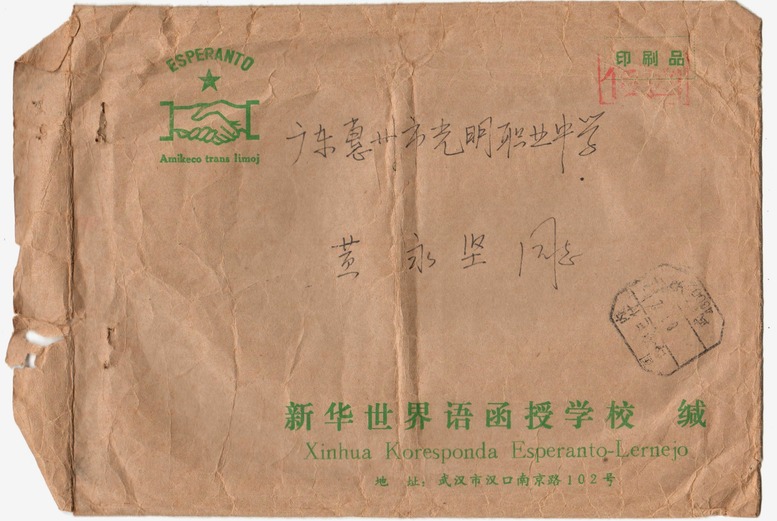 ESPERANTO
Amikeco trans limoj
印刷品
广东惠州市光明职业中学
黄永坚 同志
新华世界语函授学校 缄
Xinhua Koresponda Esperanto-Lernejo
地 址：武汉市汉口南京路102号